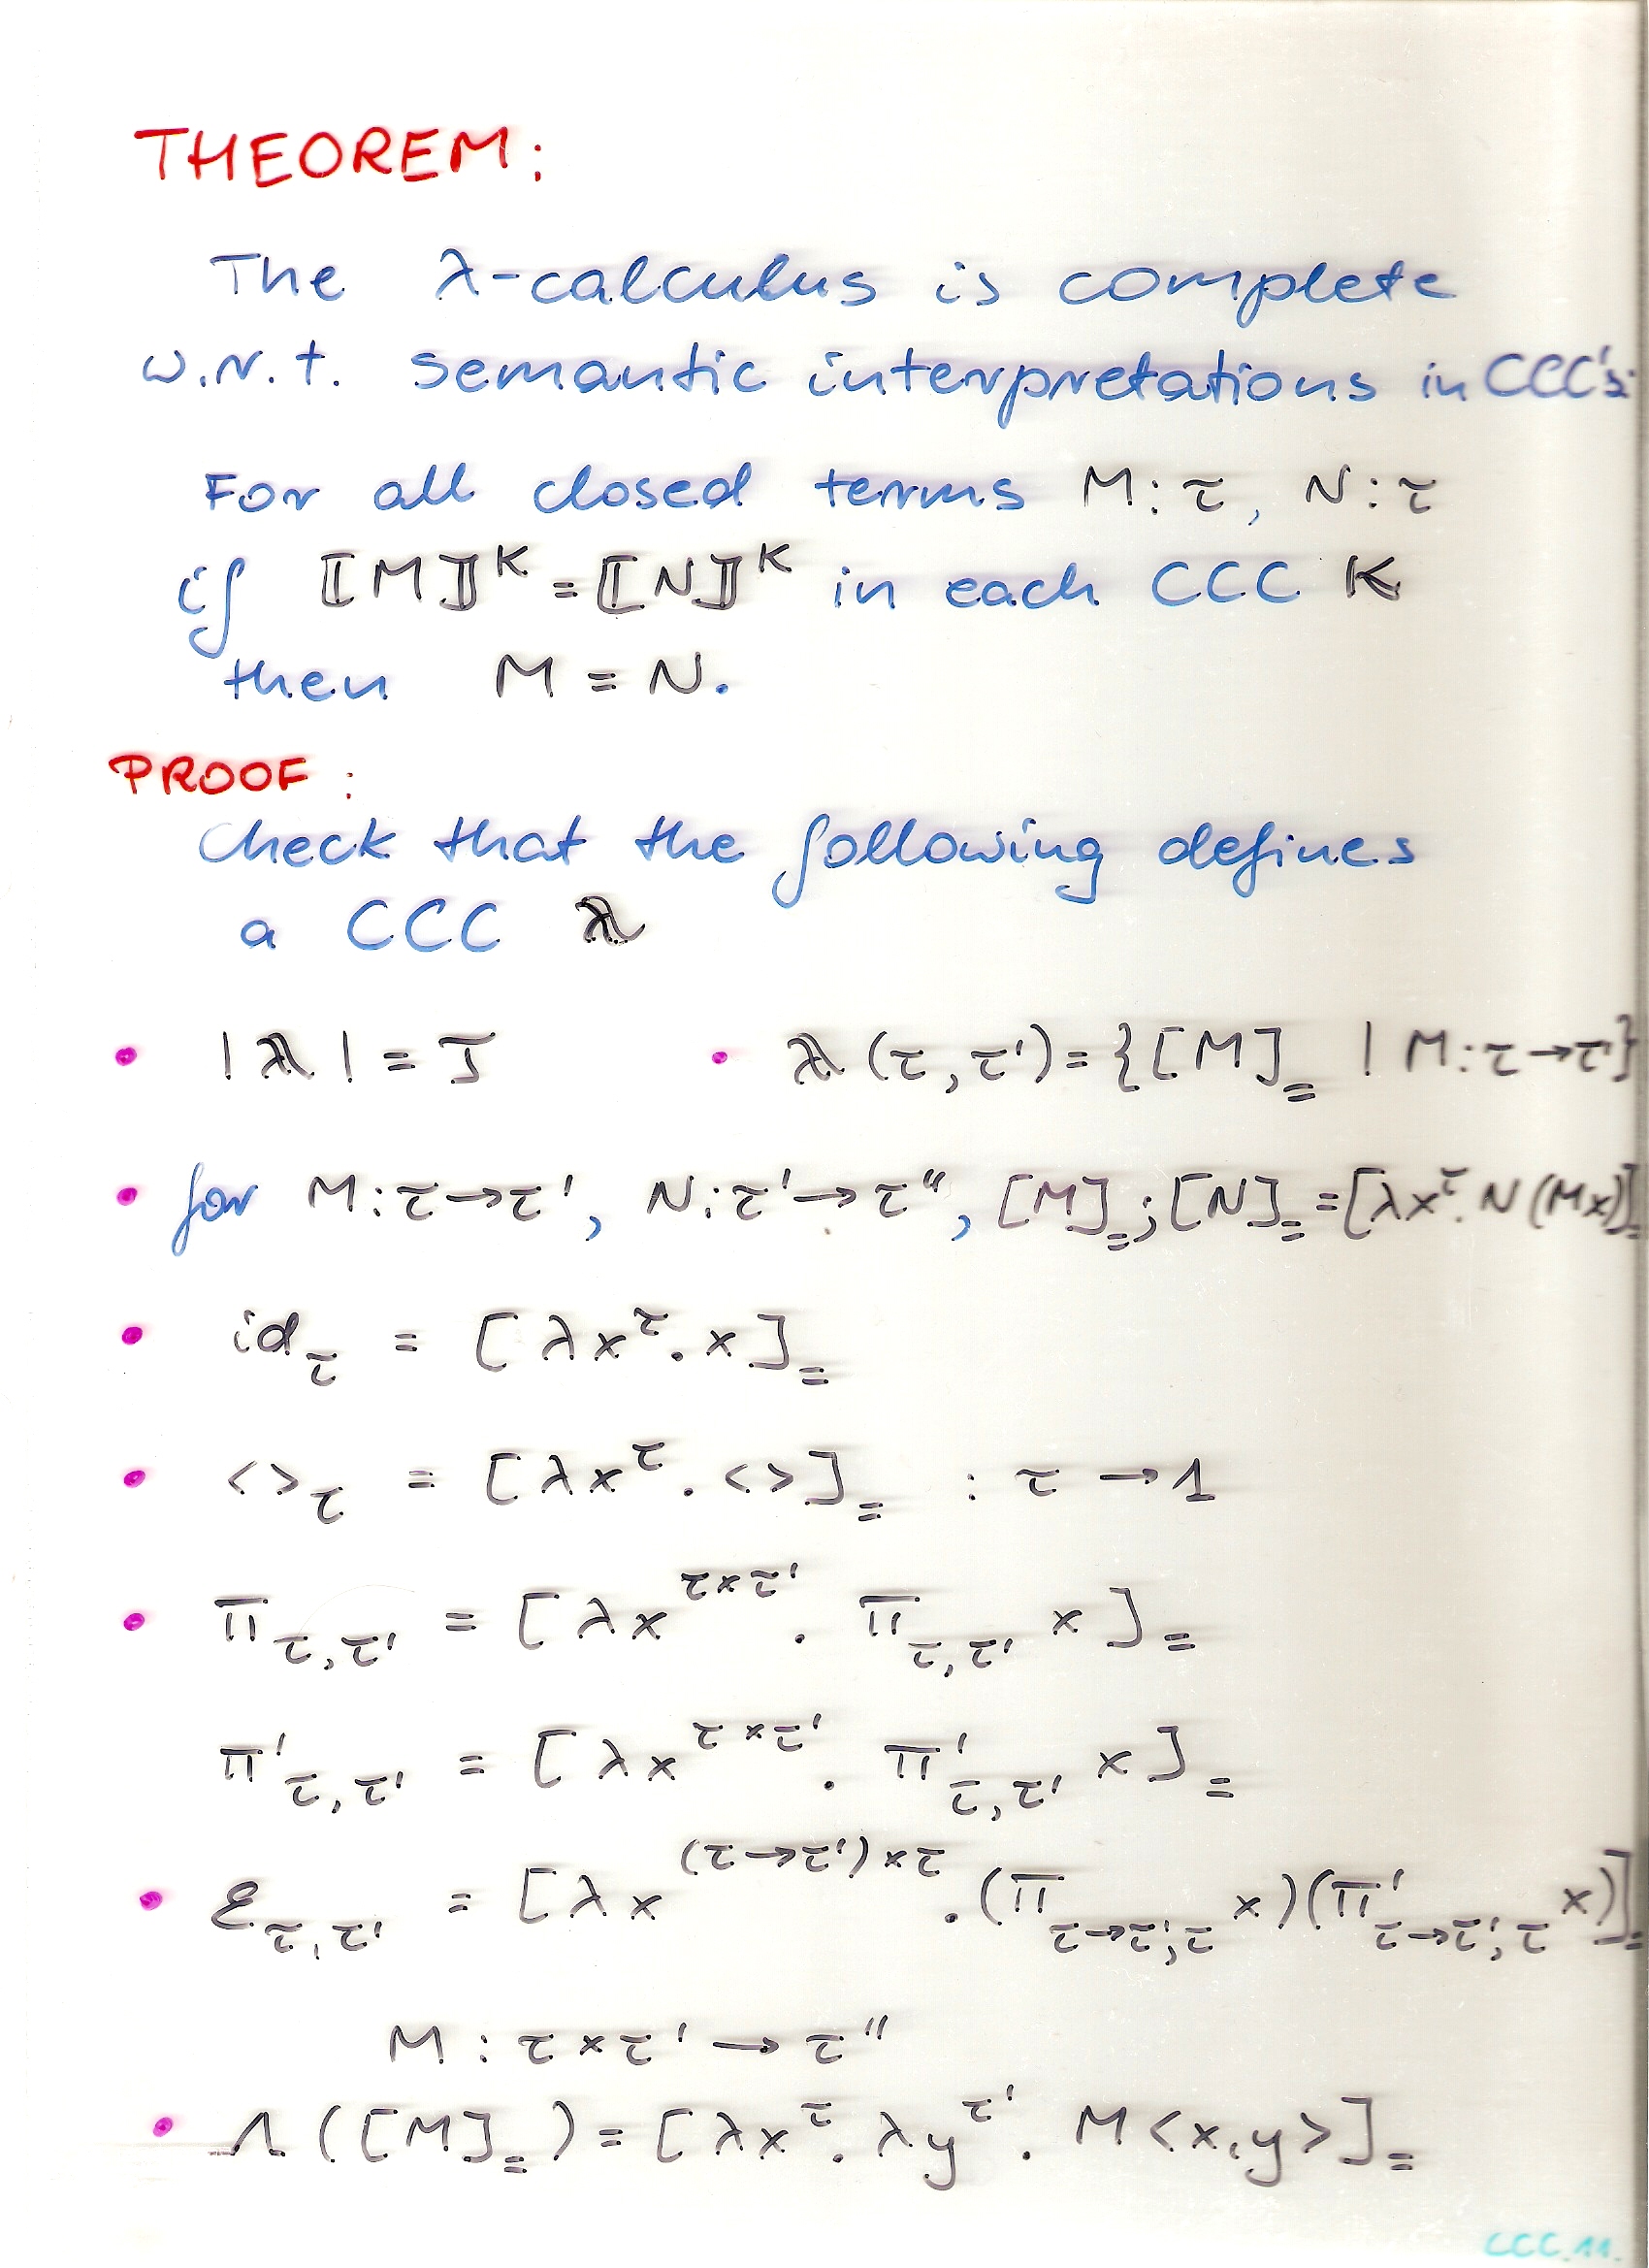 THEOREM:
The λ-calculus is complete
w.r.t. semantic interpretations in CCC's:
For all closed terms M:τ, N:τ
if ⟦M⟧ᴷ = ⟦N⟧ᴷ in each CCC 𝐊
then M = N.
PROOF:
Check that the following defines
a CCC λ
• |λ| = 𝒯 • λ(τ,τ') = {[M]₌ | M:τ→τ'}
• for M:τ→τ', N:τ'→τ'', [M]₌;[N]₌ = [λx^τ. N(Mx)]₌
• id_τ = [λx^τ. x]₌
• <>_τ = [λx^τ. <>]₌ : τ → 1
• π_{τ,τ'} = [λx^{τ×τ'}. π_{τ,τ'} x]₌
π'_{τ,τ'} = [λx^{τ×τ'}. π'_{τ,τ'} x]₌
• ε_{τ,τ'} = [λx^{(τ→τ')×τ}. (π_{τ→τ',τ} x)(π'_{τ→τ',τ} x)]₌
M : τ×τ' → τ''
• Λ([M]₌) = [λx^τ. λy^{τ'}. M<x,y>]₌
CCC 11.